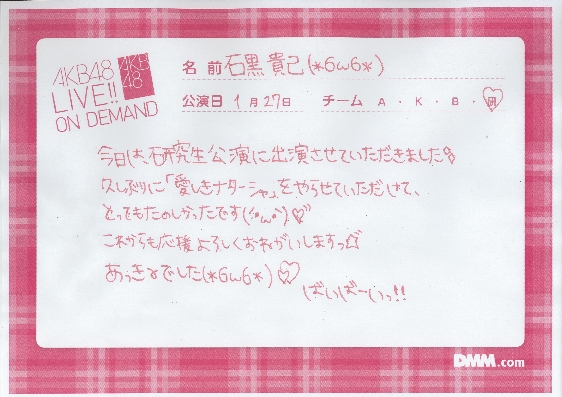 AKB48
LIVE!!
ON DEMAND
AKB
48
名前 石黒貴己(*6ω6*)
公演日 1月27日 チーム A・K・B・研
今日は、研究生公演に出演させていただきました
久しぶりに「愛しきナターシャ」をやらせていただけて、
とってもたのしかったです(*'ω'*)♡
これからも応援よろしくおねがいしますっ☆
あっきょでした(*6ω6*)♡
ばいばーいっ!!
DMM.com